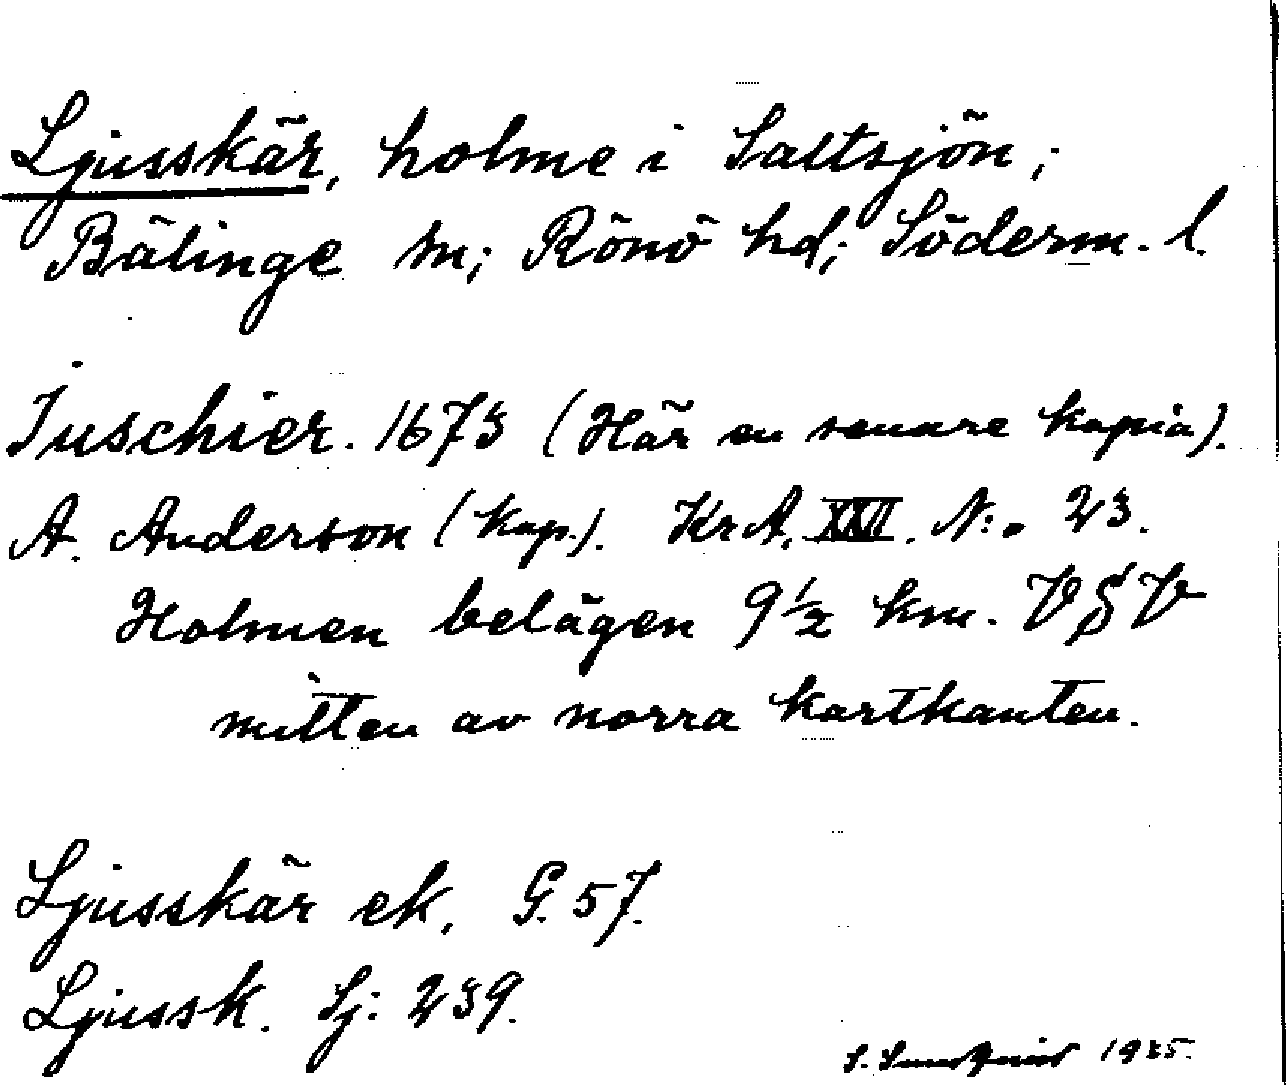 Ljusskär, holme i Saltsjön;
Bälinge sn; Rönö hd; Söderm. l.
Juschier. 1673 (Här en senare kopia).
A. Anderson (kap.). KrA, XXII. N:o 23.
Holmen belägen 9½ km. VSV
mitten av norra kartkanten.
Ljusskär ek, G. 57.
Ljussk. Sj: 239.
S. Sundqvist 1935.